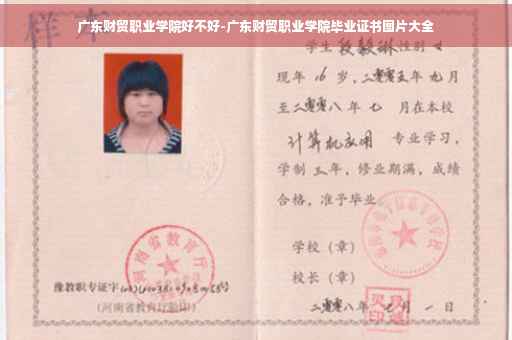 广东财贸职业学院好不好-广东财贸职业学院毕业证书图片大全
样本
学生段毅琳性别女
现年16岁,二零零五年九月
至二零零八年七月在本校
计算机应用专业学习,
学制三年,修业期满,成绩
合格,准予毕业
学校(章)
校长(章)
二零零八年七月一日
河南省教育厅
豫教职专证字
(河南省教育厅验印)